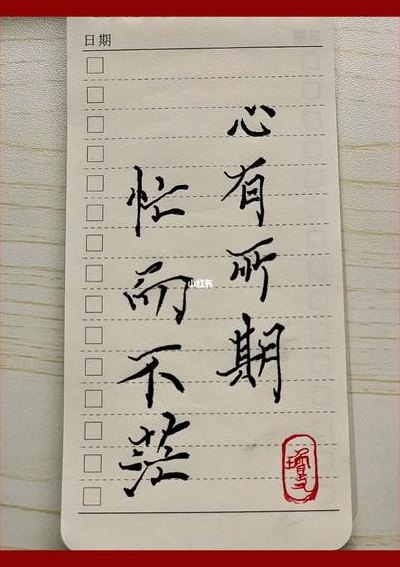 日期
心有所期
忙而不茫
小红书